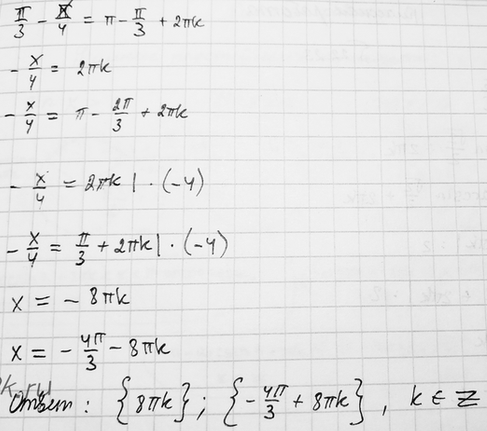 π/3 - x/4 = π - π/3 + 2πk
- x/4 = 2πk
- x/4 = π - 2π/3 + 2πk
- x/4 = 2πk | · (-4)
- x/4 = π/3 + 2πk | · (-4)
x = - 8πk
x = - 4π/3 - 8πk
Ответ: {8πk}; {-4π/3 + 8πk}, k ∈ Z